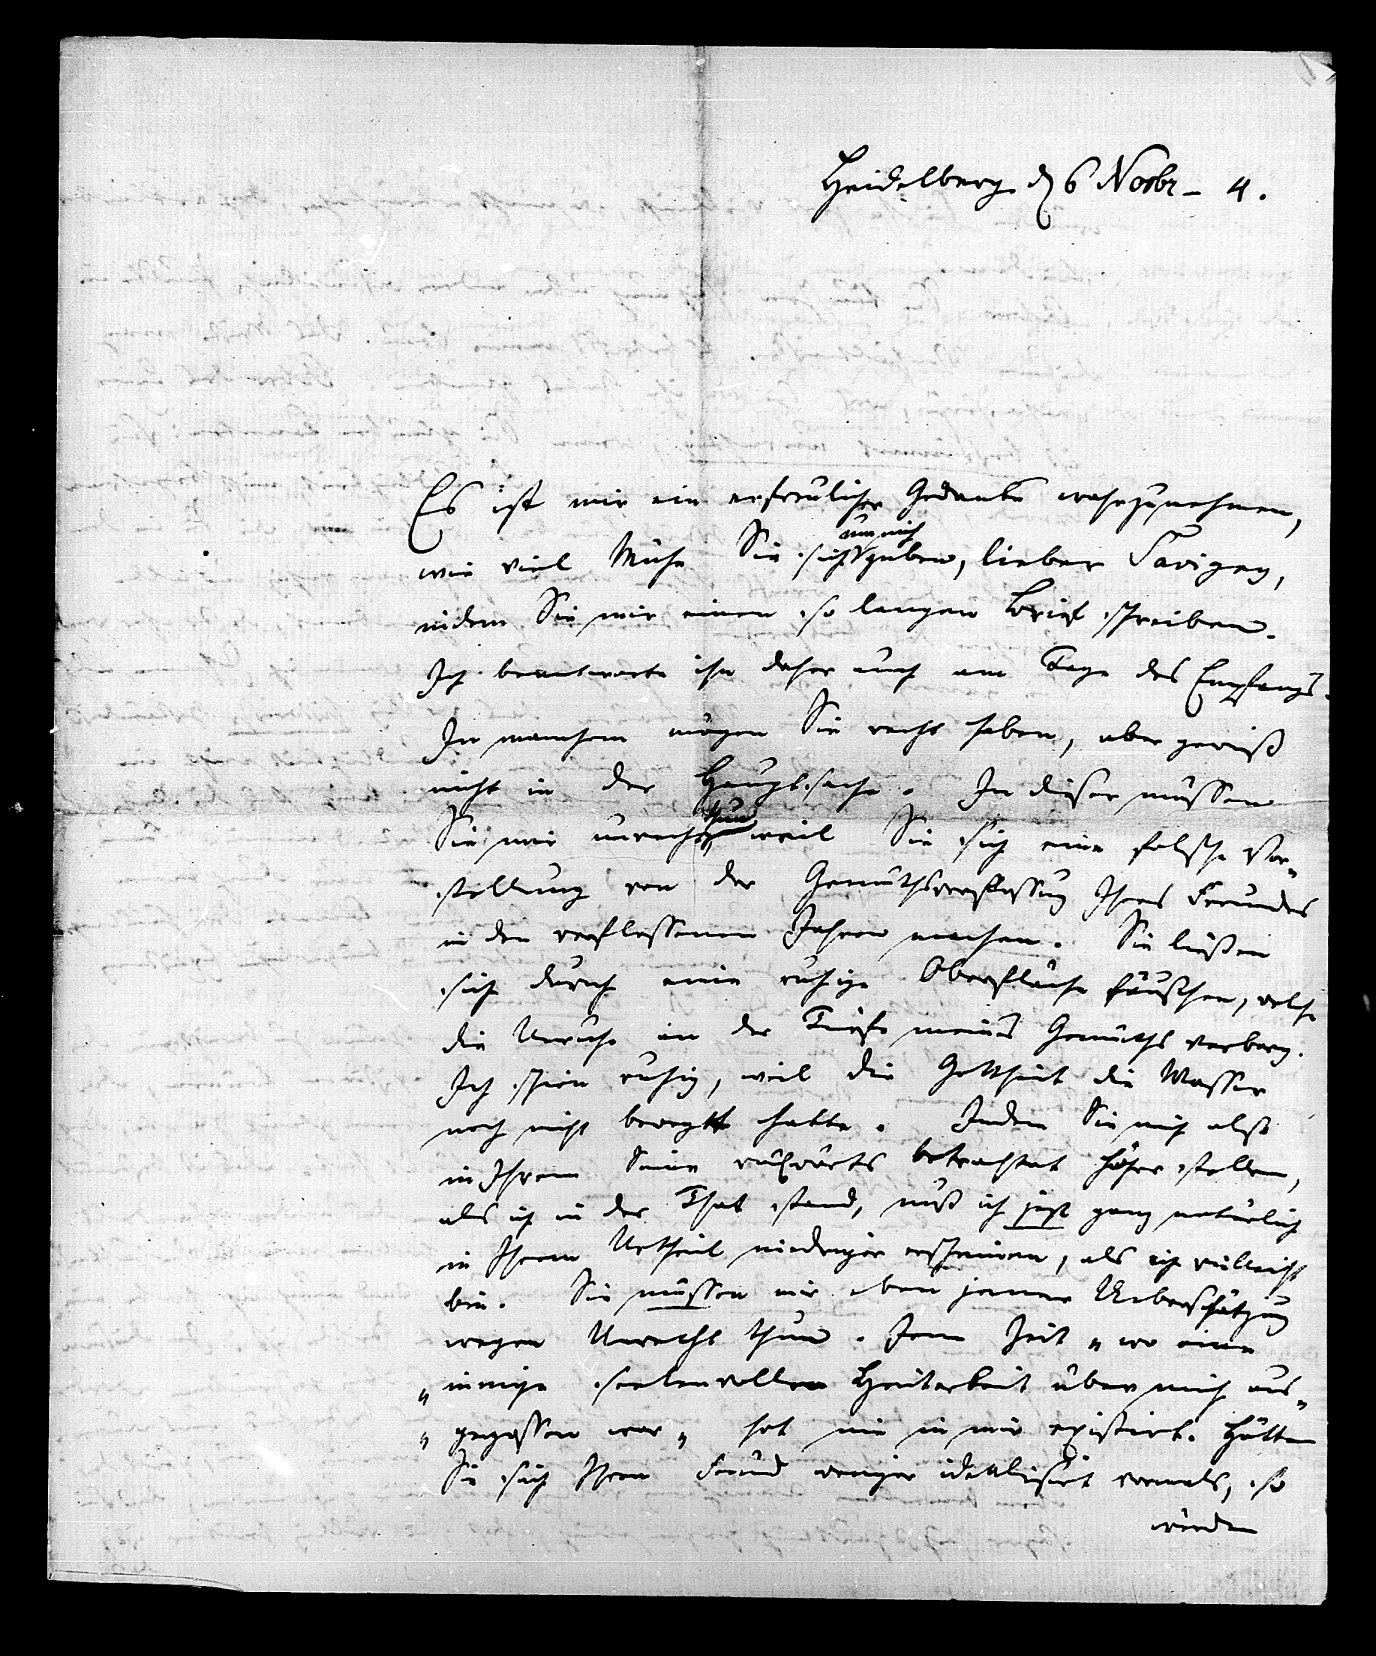 Heidelberg d 6 Novbr - 4.
Es ist mir ein erfreulicher Gedanke wahrzunehmen,
wie viel Mühe Sie sich um mich geben, lieber Savigny,
indem Sie mir einen so langen Brief schreiben.
Ich beantworte ihn daher auch am Tage des Empfangs.
In manchem mögen Sie recht haben, aber gewiß
nicht in der Hauptsache. In dieser müssen
Sie mir unrecht thun weil Sie sich eine falsche Vor„
stellung von der Gemüthsverfassung Ihres Freundes
in den verflossenen Jahren machen. Sie ließen
sich durch eine ruhige Oberfläche täuschen, welche
die Unruhe in der Tiefe meines Gemüths verbarg.
Ich schien ruhig, weil die Gottheit die Wasser
noch nicht bewegt hatte. Indem Sie mich also
in Ihrem Sinn rückwärts betrachtet höher stellen,
als ich in der That stand, muß ich jezt ganz natürlich
in Ihrem Urtheil niedriger erscheinen, als ich vielleicht
bin. Sie müssen mir eben jener Ueberschätzung
wegen Unrecht thun. Jene Zeit „wo eine
„innige seelenvolle Heiterkeit über mich aus„
„gegossen war„ hat nie in mir existirt. Hätten
Sie sich Ihren Freund weniger idealisirt vormals, so
würden